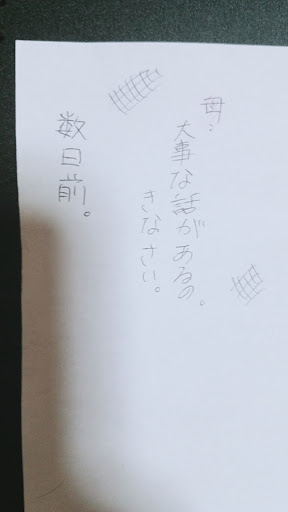 母。
大事な話があるの。
きなさい。
数日前。